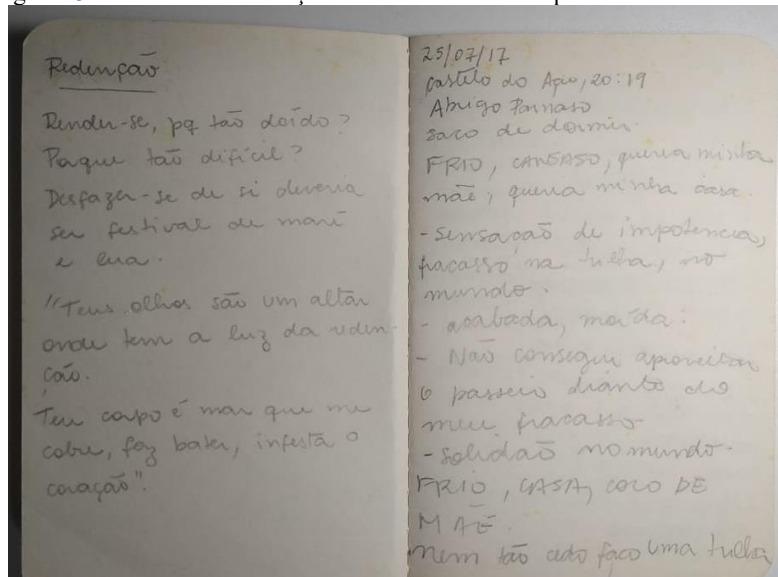 Redenção
Render-se, pq tão doído?
Porque tão difícil?
Desfazer-se de si deveria
ser festival de maré
e lua.
"Teus olhos são um altar
onde tem a luz da reden-
ção.
Teu corpo é mar que me
cobre, faz bater, infesta o
coração".
25/07/17
Castelo do Açu, 20:19
Abrigo Parnaso
saco de dormir
FRIO, CANSASO, queria minha
mãe, queria minha casa.
- sensação de impotencia,
fracasso na trilha, no
mundo.
- acabada, moída.
- Não consegui aproveitar
o passeio diante do
meu fracasso
- solidão no mundo -
FRIO, CASA, COLO DE
MÃE.
nem tão cedo faço uma trilha